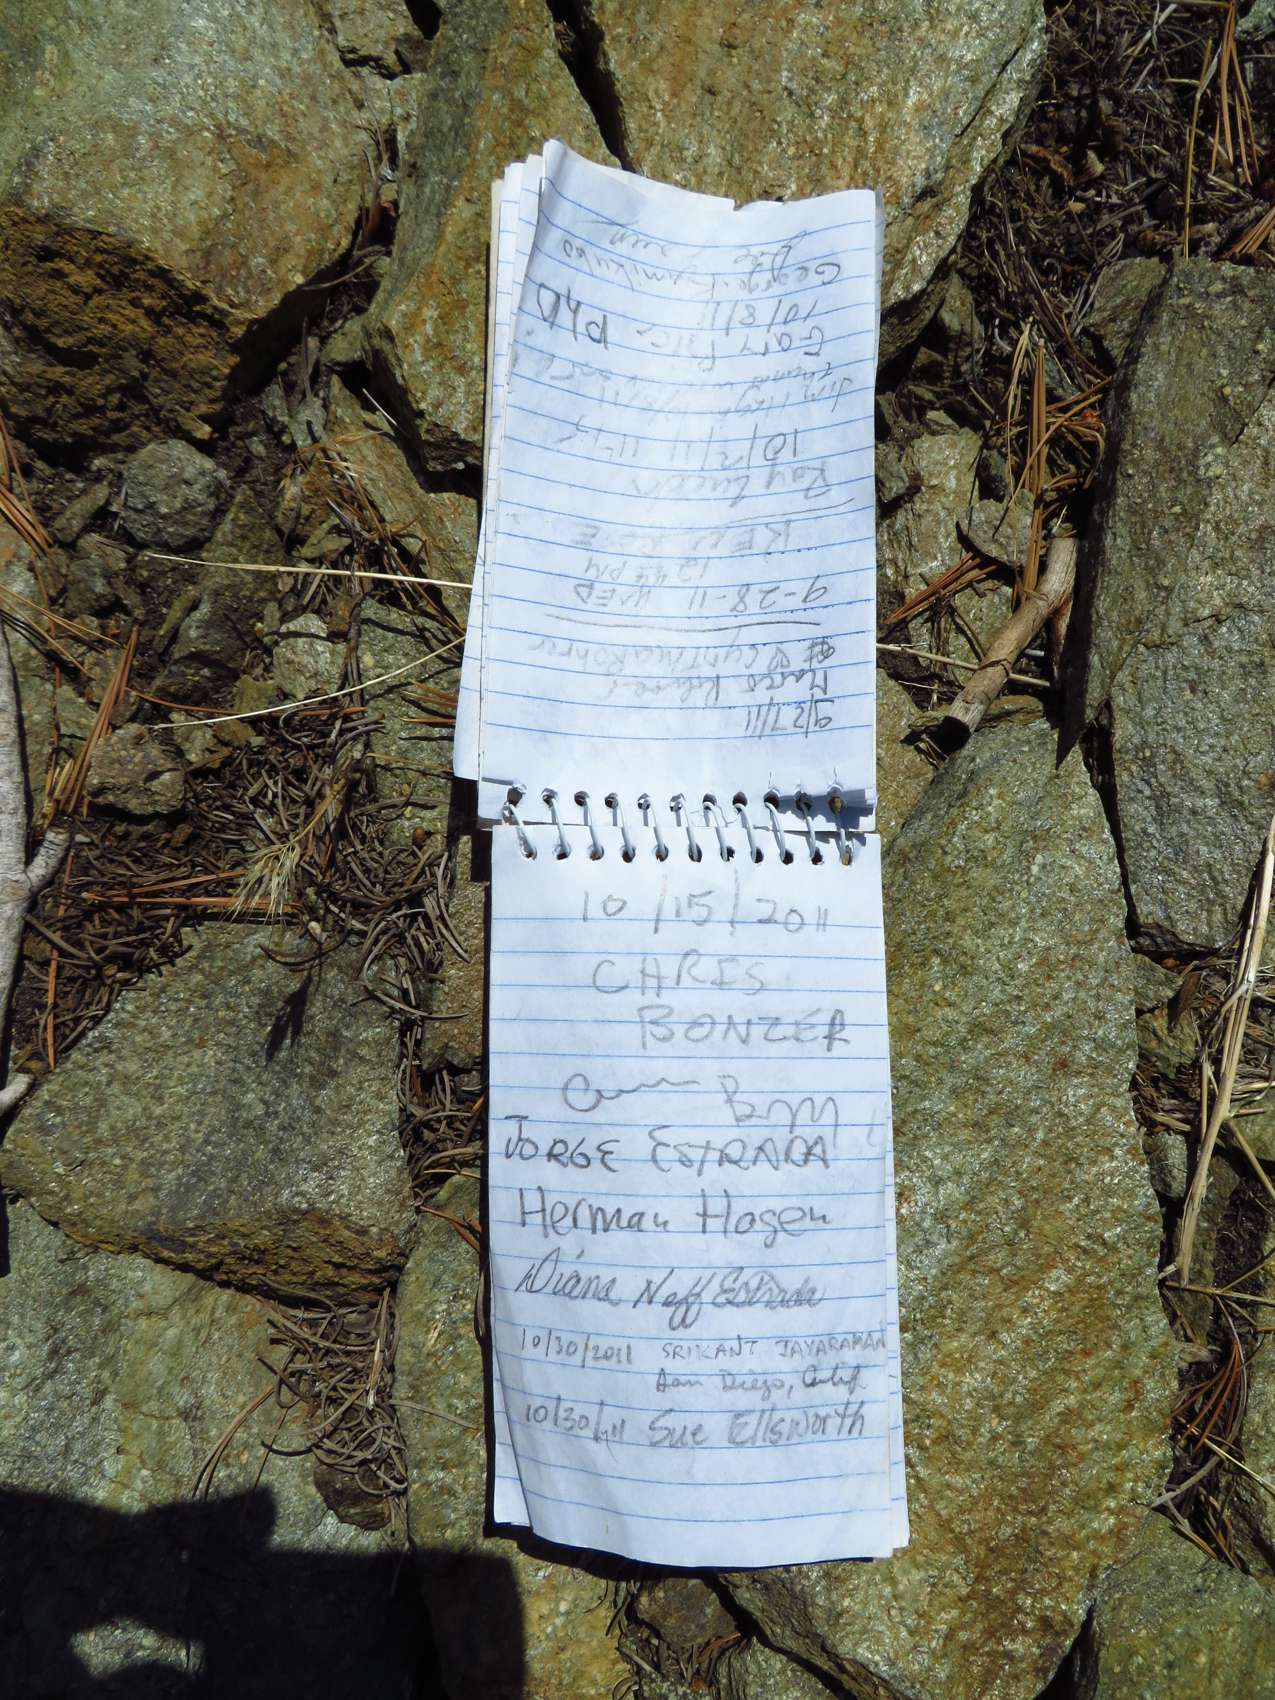 9/27/11
Marco
& Cynthia Rohrer
9-28-11 WED
12 44 PM
KEN ROSE
Ray
10/2/11 11:45
Jim
Gary PhD
10/8/11
George
10/15/2011
CHRES
BONZER
JORGE ESTRADA
Herman Hagen
Diana Neff Estrada
10/30/2011 SRIKANT JAYARAMAN
San Diego, Calif.
10/30/11 Sue Ellsworth